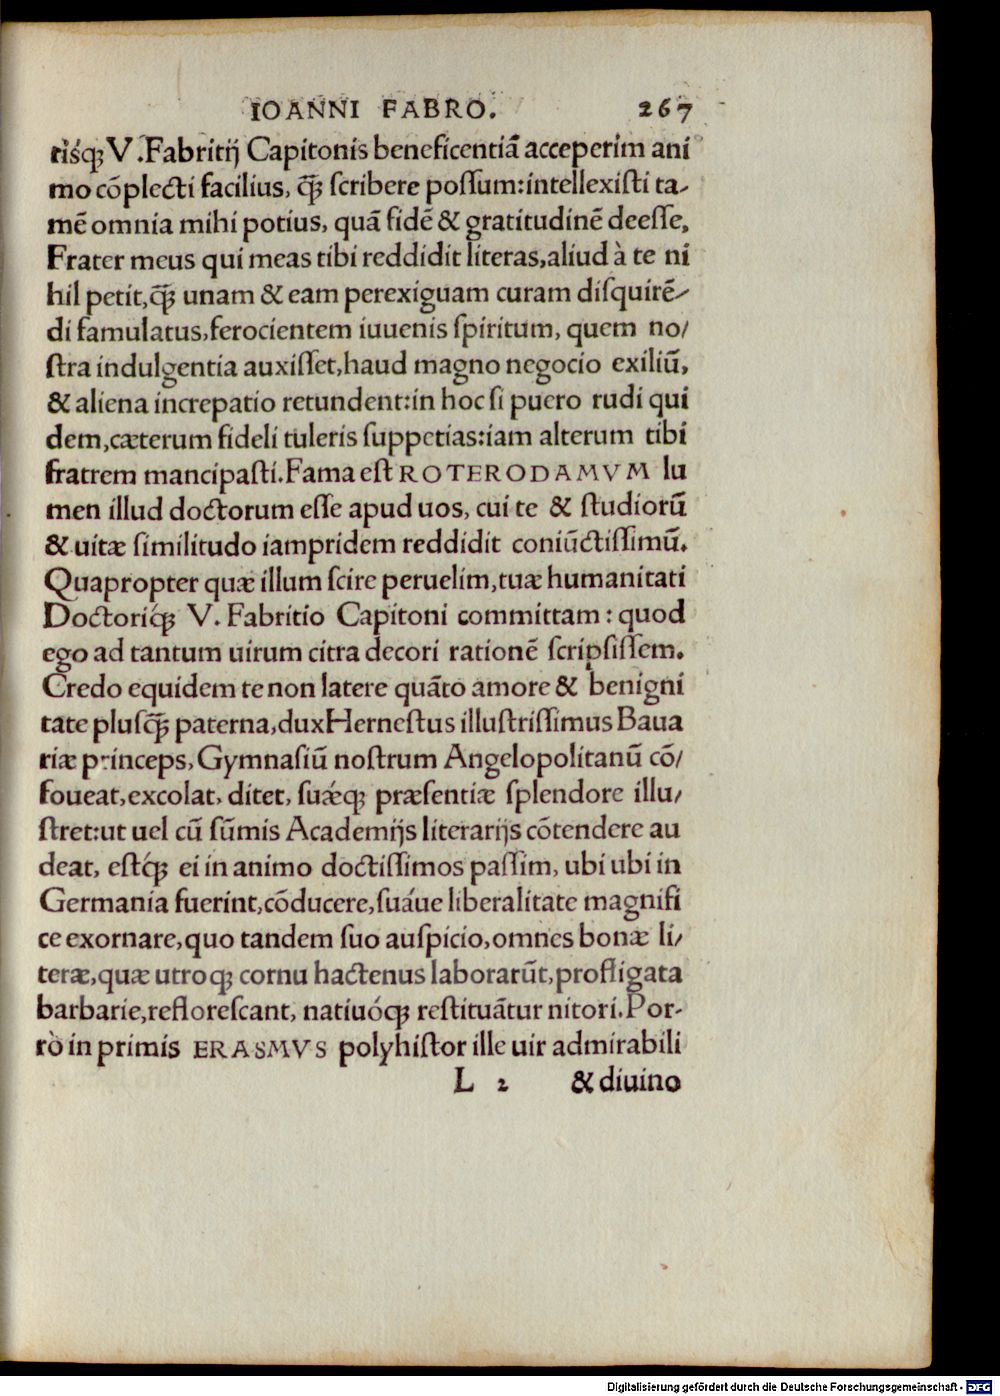 IOANNI FABRO. 267
risq́ꝫ V. Fabritij Capitonis beneficentiã acceperim ani
mo cõplecti facilius, q̃ꝫ ſcribere poſſum:intellexiſti ta-
mẽ omnia mihi potius, quã fidẽ & gratitudinẽ deeſſe,
Frater meus qui meas tibi reddidit literas,aliud à te ni
hil petit,q̃ꝫ unam & eam perexiguam curam diſquirẽ-
di famulatus,ferocientem iuuenis ſpiritum, quem no/
ſtra indulgentia auxiſſet,haud magno negocio exiliũ,
& aliena increpatio retundent:in hoc ſi puero rudi qui
dem,cæterum fideli tuleris ſuppetias:iam alterum tibi
fratrem mancipaſti.Fama eſt ROTERODAMVM lu
men illud doctorum eſſe apud uos, cui te & ſtudiorũ
& uitæ ſimilitudo iampridem reddidit coniũctiſſimũ.
Quapropter quæ illum ſcire peruelim,tuæ humanitati
Doctoriq́ꝫ V. Fabritio Capitoni committam : quod
ego ad tantum uirum citra decori rationẽ ſcripſiſſem.
Credo equidem te non latere quãto amore & benigni
tate pluſq̃ꝫ paterna,dux Herneſtus illuſtriſſimus Baua
riæ princeps, Gymnaſiũ noſtrum Angelopolitanũ cõ/
foueat,excolat, ditet, ſuáeqꝫ præſentiæ ſplendore illu/
ſtret:ut uel cũ ſũmis Academijs literarijs cõtendere au
deat, eſtq́ꝫ ei in animo doctiſſimos paſſim, ubi ubi in
Germania fuerint,cõducere,ſuáue liberalitate magnifi
ce exornare,quo tandem ſuo auſpicio,omnes bonæ li/
teræ,quæ utroqꝫ cornu hactenus laborarũt,profligata
barbarie,refloreſcant, natiuóqꝫ reſtituãtur nitori.Por-
rò in primis ERASMVS polyhiſtor ille uir admirabili
L 2 & diuino
Digitalisierung gefördert durch die Deutsche Forschungsgemeinschaft - DFG